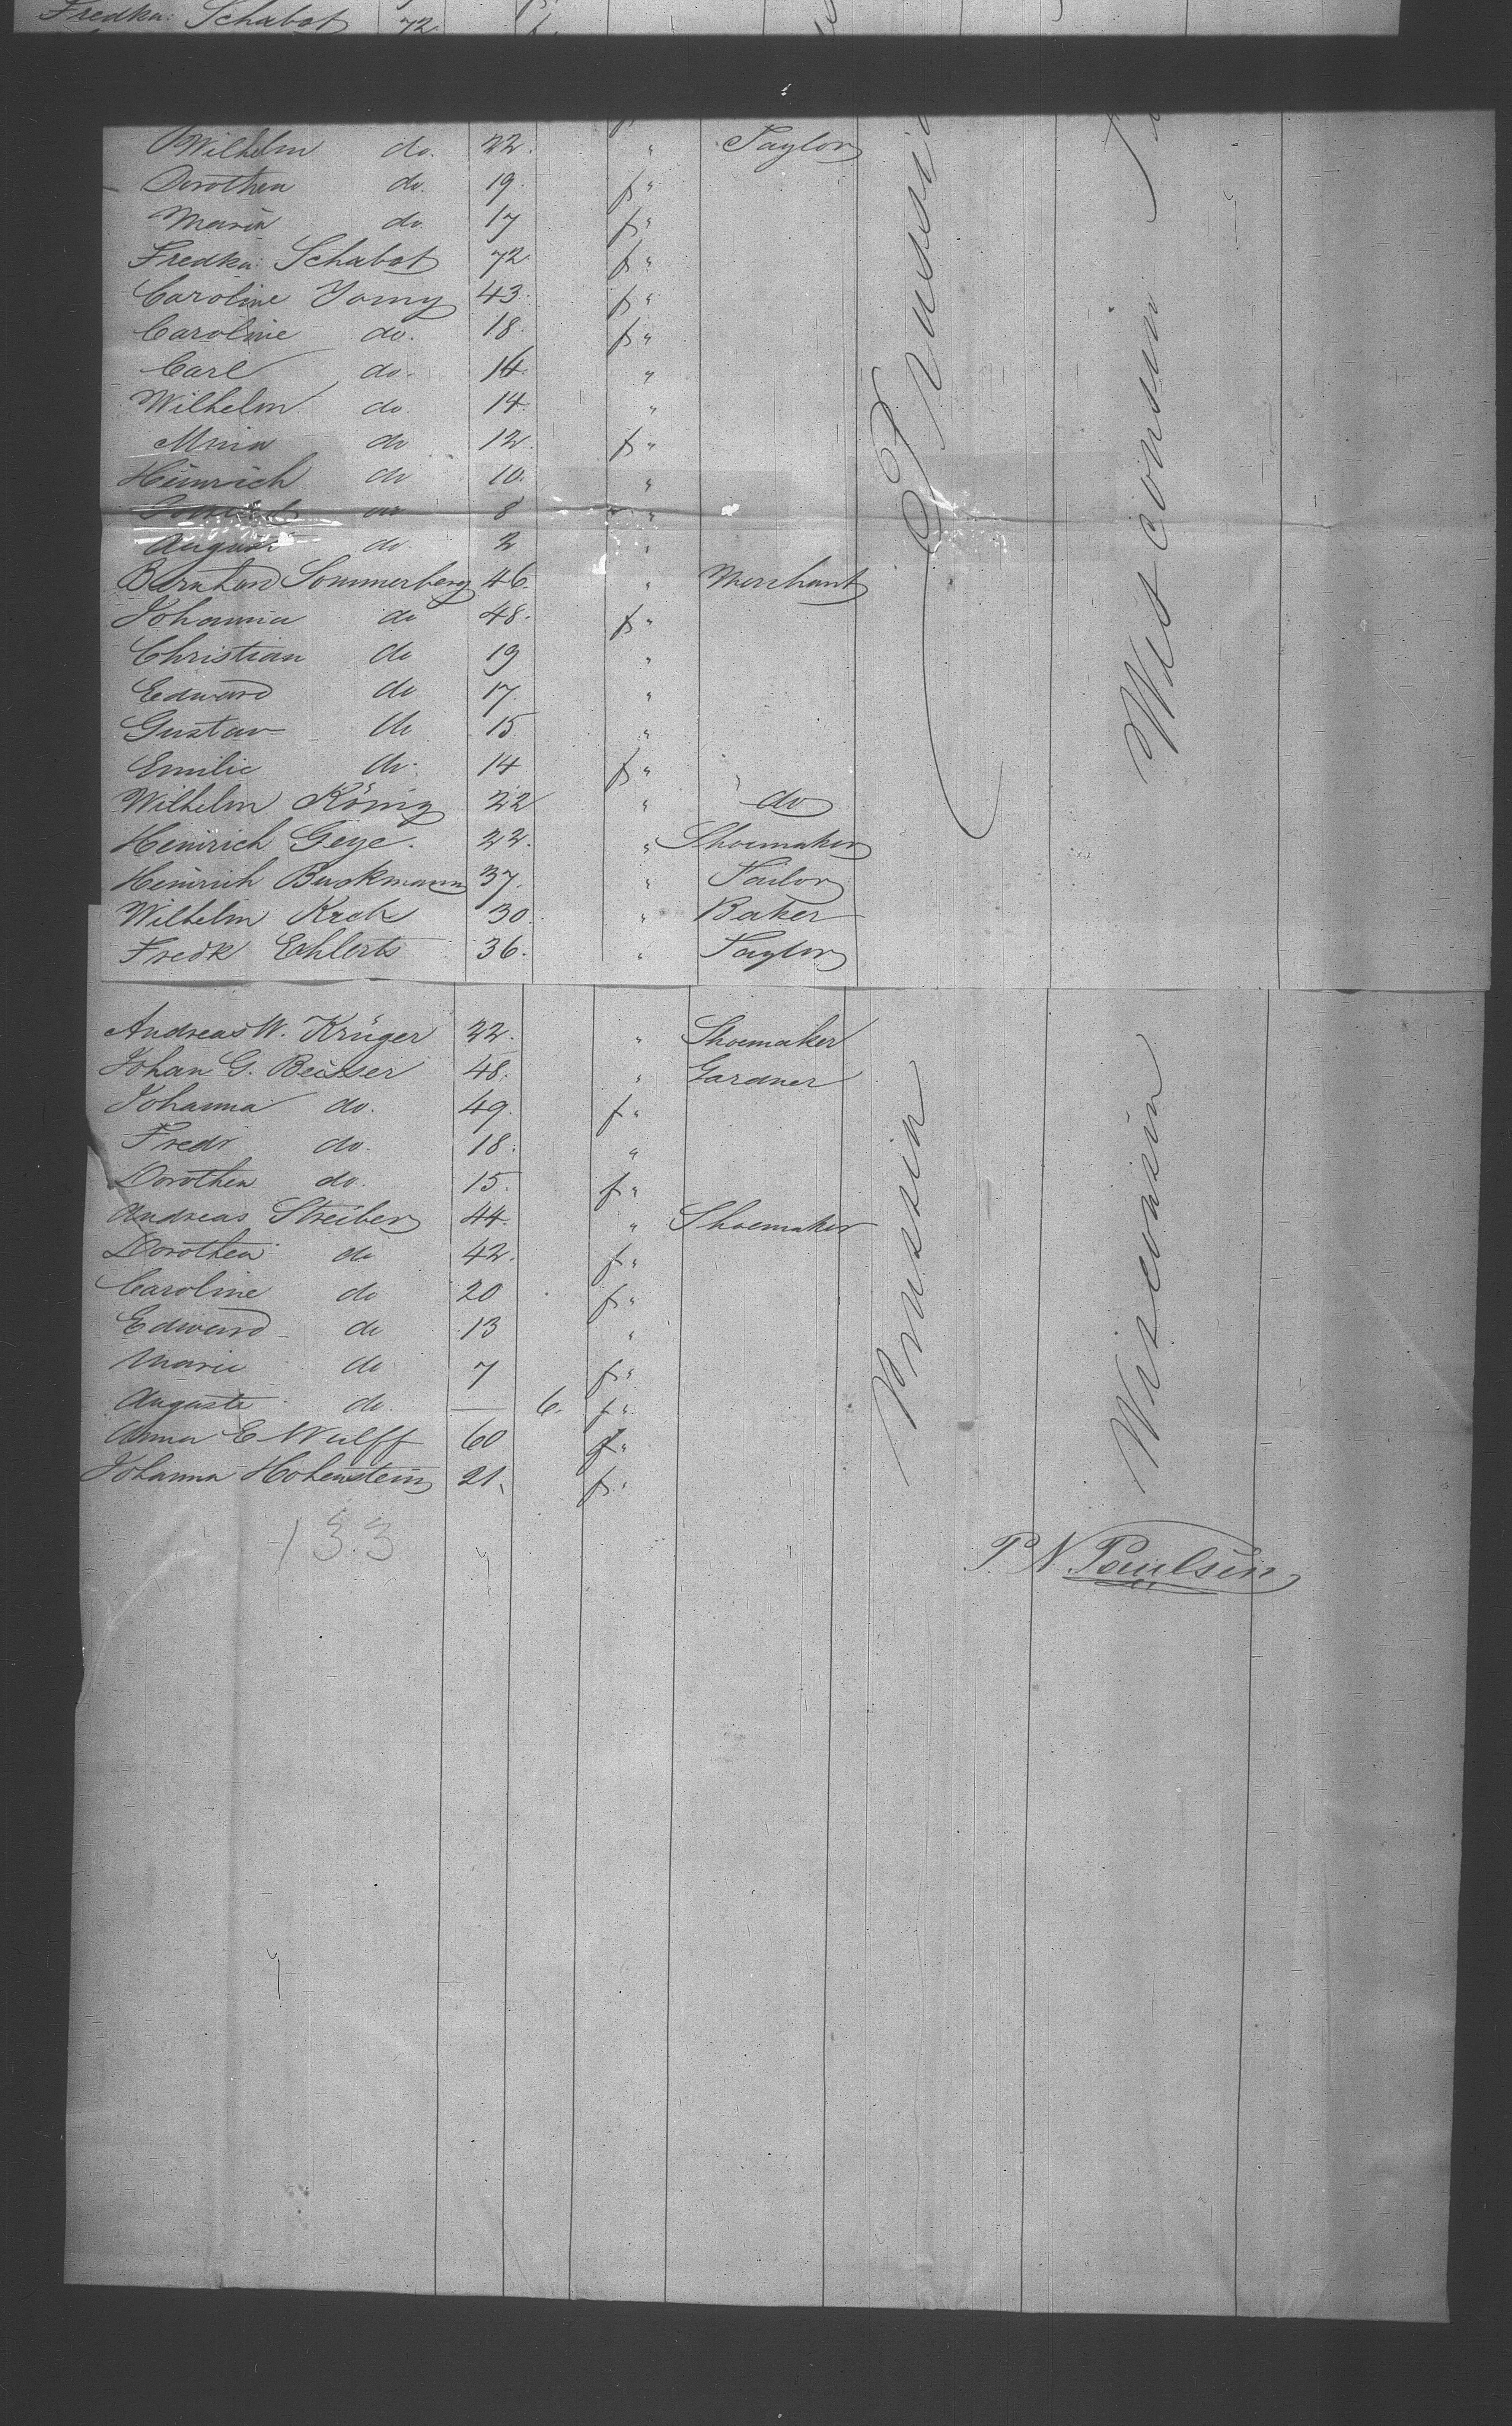 Fredka: Schabot 72 f
Wilhelm do. 22. " Taylor
Dorothea do. 19. f "
Maria do 17 f "
Fredka: Schabot 72 f "
Caroline 43. f "
Caroline do. 18. f "
Carl do. 14. "
Wilhelm do. 14. "
Mina do 12. f "
Heinrich do 10. "
do 8 "
August do. 2 "
Bernhard Sommerberg 46. " Merchant
Johanna do 48. f "
Christian do 19 "
Edward do 17. "
Gustav do 15 "
Emilie do. 14 f "
Wilhelm König 22 " do
Heinrich Geye. 22. " Shoemaker
Heinrich Buckmann 37. " Tailor
Wilhelm 30. " Baker
Fredk Ehlerts 36. " Taylor
Prussia
Wisconsin
Andreas W. Krüger 22. " Shoemaker
Johan G. Beisser 48. " Gardner
Johanna do. 49. f "
Fredr do. 18. "
Dorothea do. 15. f "
Andreas Streiber 44. " Shoemaker
Dorothea do 42. f "
Caroline do 20 f "
Edward do 13 "
Marie do 7 f "
Auguste do. — 6. f "
Anna E Wulff 60 f "
Johanna Hohenstein 21. f "
Prussia
Wisconsin
133
P. N. Paulsen